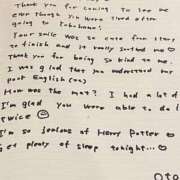 Thank you for coming to see me
even though you were tired after
going to Yokohama!
Your smile was so cute from start
to finish and it really soothed me ♡
Thank you for being so kind to me.
I was glad that you understood my
poor English (cry)
How was the mat? I had a lot of
I'm glad you were able to do it
twice ☺
I'm so jealous of Harry Potter ♡
Get plenty of sleep tonight...♡
Oto